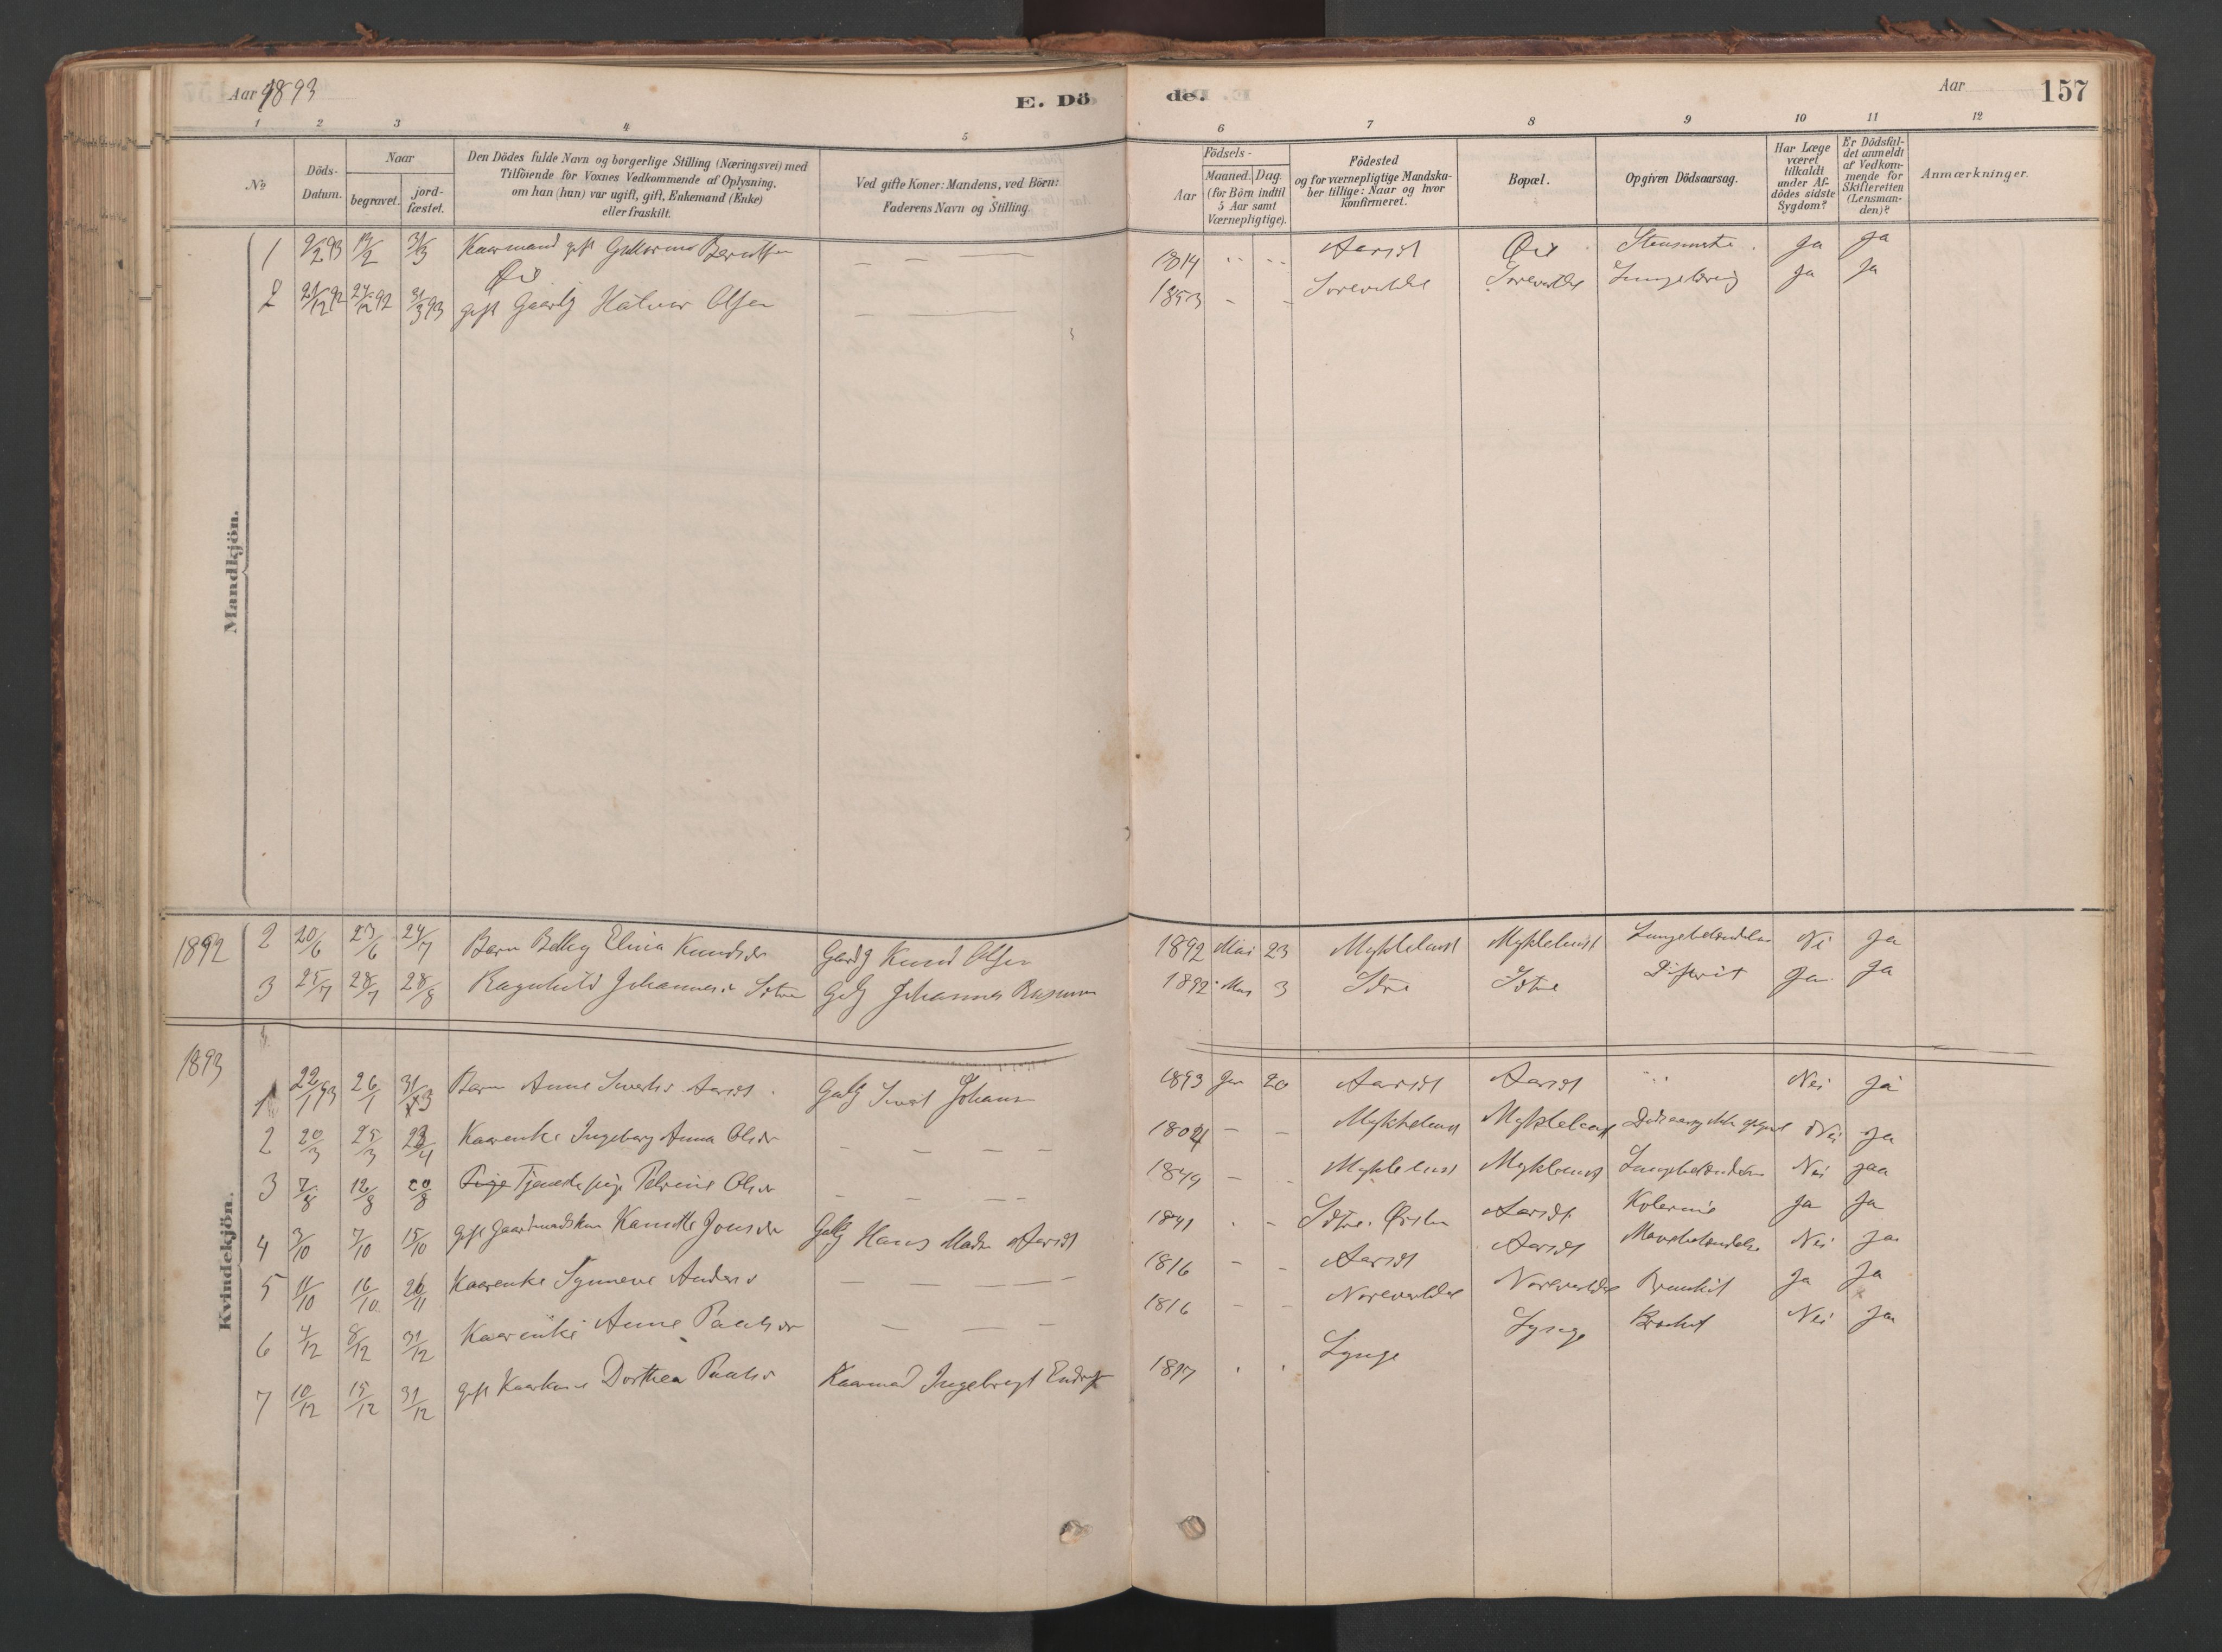 Aar 1893
E. Dö
de.
Aar
157
1 2 3 4 5
6 7 8 9 10 11 12
№
Döds-
Datum.
Naar
begravet.
jord-
fæstet.
Den Dödes fulde Navn og borgerlige Stilling (Næringsvei) med
Tilföiende for Voxnes Vedkommende af Oplysning,
om han (hun) var ugift, gift, Enkemand (Enke)
eller fraskilt.
Ved gifte Koner: Mandens, ved Börn:
Faderens Navn og Stilling.
Födsels-
Aar
Maaned.
Dag.
(for Börn indtil
5 Aar samt
Værnepligtige).
Födested
og for værnepligtige Mandska-
ber tillige: Naar og hvor
konfirmeret.
Bopæl.
Opgiven Dödsaarsag.
Har Læge
været
tilkaldt
under Af-
dödes sidste
Sygdom?
Er Dödsfal-
det anmeldt
af Vedkom-
mende for
Skifteretten
(Lensman-
den)?
Anmærkninger.
Mandkjön.
1 9/2 93 31/3 Kaarmand gift 1814 Aarset Ja Ja
2 21/12 92 27/12 92 31/3 93 gift Olsen 1853 Ja Ja
1892 2 20/6 23/6 24/7 Barn Elina Knudsdr Gardbr Knud Olsen 1892 Mai 23 Myklebust Myklebust Lungebetændelse Nei Ja
3 25/7 28/7 28/8 Ragnhild Johannesd Sætre Gbr Johannes Rasmussen 1892 Mai 3 Sætre Sætre Difterit Ja Ja
1893
1 22/1 93 26/1 31/3 Barn Anne Sivertsd Aarset Gbr Sivert Johans 1893 Jan 20 Aarset Aarset Nei Ja
2 20/3 25/3 23/4 Kaarenke Ingeborg Anna Olsdr 1804 Myklebust Myklebust Dødsaarsag ikke opgivet Nei Ja
3 7/8 12/8 20/8 Pige Tjenestepige Petrine Olsdr 1849 Myklebust Myklebust Lungebetændelse Nei Jaa
4 3/10 7/10 15/10 gift Gaardmandskone Jonsdr Gbr Hans Mads Aarset 1841 Sætre Ørsten Aarset Kolerine Ja Ja
5 11/10 16/10 26/11 Kaarenke Synneve Andersd 1816 Aarset Aarset Mavebetændelse Nei Ja
6 4/12 8/12 31/12 Kaarenke Anne Paulsdr 1816 Norevalde Norevalde Bronkit Ja Ja
7 10/12 15/12 31/12 gift Kaarkone Dorthea Paulsd Kaarmand Ingebrigt 1817 Lynge Lynge Nei Jaa
Kvindekjön.